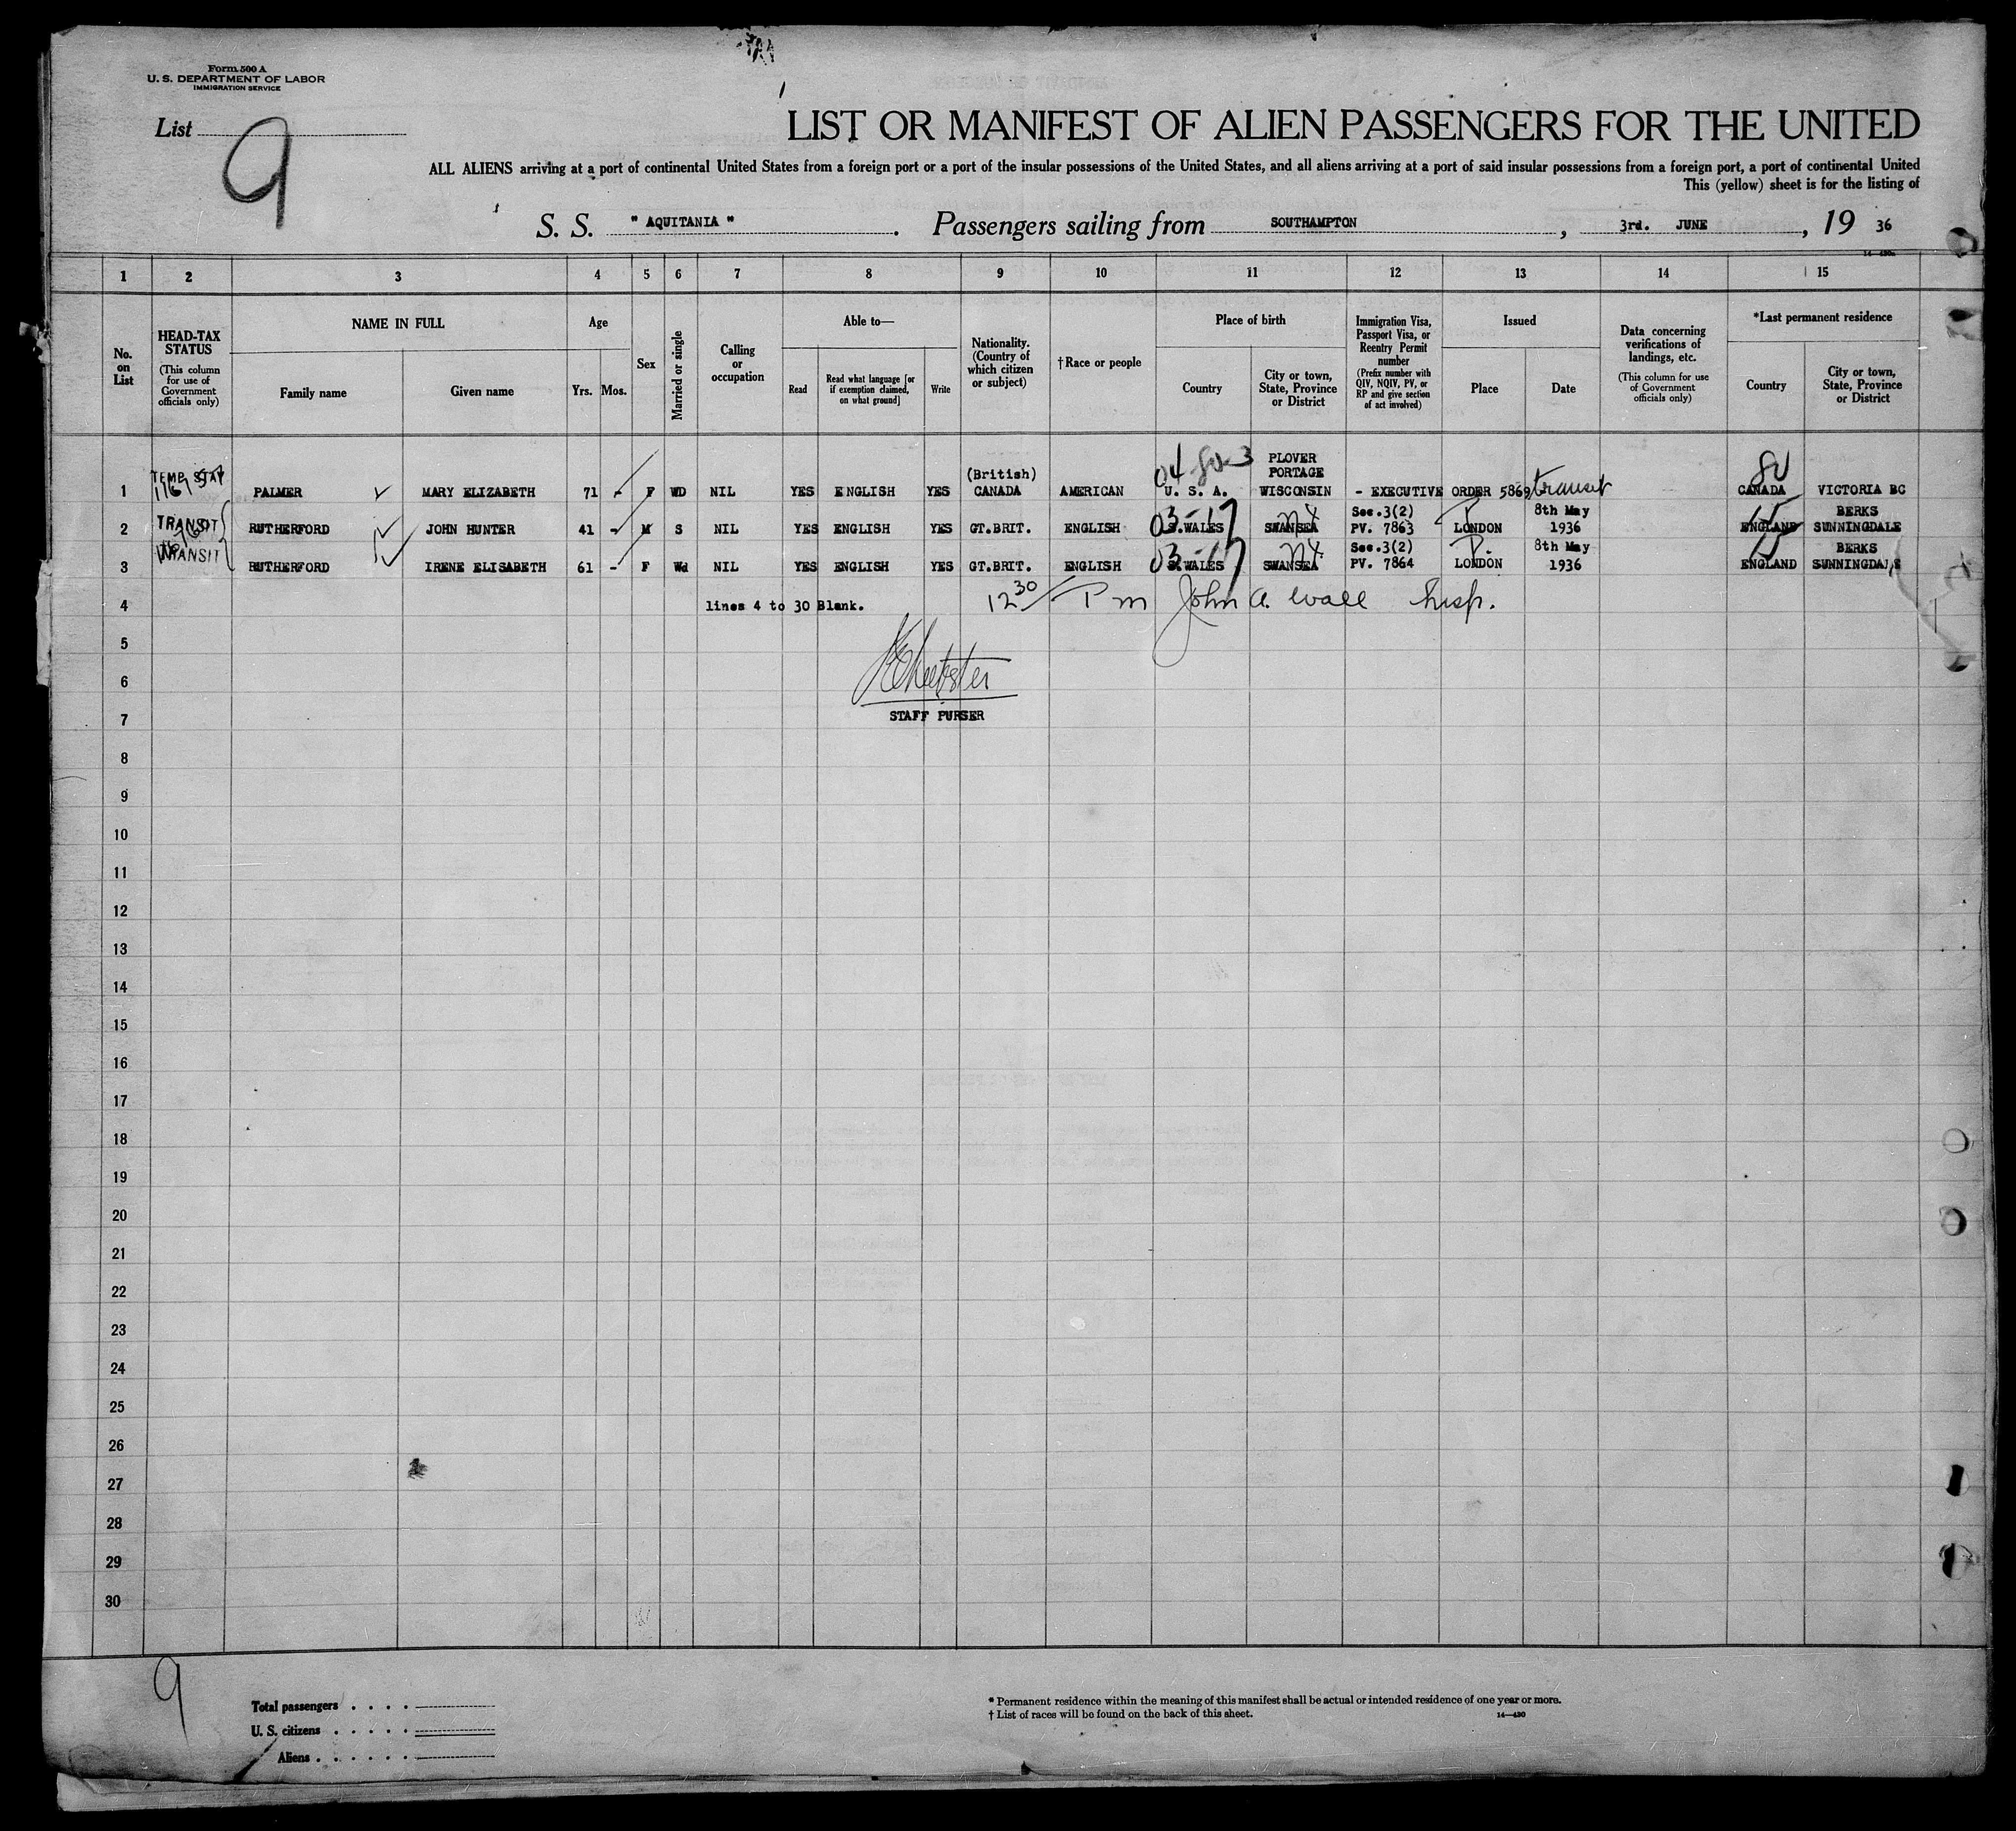 Form 500 A
U. S. DEPARTMENT OF LABOR
IMMIGRATION SERVICE
List 9
LIST OR MANIFEST OF ALIEN PASSENGERS FOR THE UNITED
ALL ALIENS arriving at a port of continental United States from a foreign port or a port of the insular possessions of the United States, and all aliens arriving at a port of said insular possessions from a foreign port, a port of continental United
This (yellow) sheet is for the listing of
S. S. " AQUITANIA ". Passengers sailing from SOUTHAMPTON, 3rd. JUNE, 19 36
1 2 3 4 5 6 7 8 9 10 11 12 13 14 15
No. on List
HEAD-TAX STATUS (This column for use of Government officials only)
NAME IN FULL
Family name
Given name
Age
Yrs. Mos.
Sex
Married or single
Calling or occupation
Able to—
Read
Read what language [or if exemption claimed, on what ground]
Write
Nationality. (Country of which citizen or subject)
†Race or people
Place of birth
Country
City or town, State, Province or District
Immigration Visa, Passport Visa, or Reentry Permit number (Prefix number with QIV, NQIV, PV, or RP and give section of act involved)
Issued
Place
Date
Data concerning verifications of landings, etc. (This column for use of Government officials only)
*Last permanent residence
Country
City or town, State, Province or District
1 TEMP STAY PALMER MARY ELIZABETH 71 - F WD NIL YES ENGLISH YES (British) CANADA AMERICAN 04 U. S. A. PLOVER PORTAGE WISCONSIN - EXECUTIVE ORDER 5869 transit 80 CANADA VICTORIA BC
2 TRANSIT RUTHERFORD JOHN HUNTER 41 - M S NIL YES ENGLISH YES GT.BRIT. ENGLISH 03-17 S.WALES SWANSEA Sec.3(2) PV. 7863 LONDON 8th May 1936 15 ENGLAND BERKS SUNNINGDALE
3 TRANSIT RUTHERFORD IRENE ELISABETH 61 - F Wd NIL YES ENGLISH YES GT.BRIT. ENGLISH 03-17 S.WALES SWANSEA Sec.3(2) PV. 7864 LONDON 8th May 1936 15 ENGLAND BERKS SUNNINGDALE
4 lines 4 to 30 Blank. 12 30 Pm John A. Wall Insp.
5
6
7 STAFF PURSER
8
9
10
11
12
13
14
15
16
17
18
19
20
21
22
23
24
25
26
27
28
29
30
9
Total passengers . . . .
U. S. citizens . . . . .
Aliens . . . . . .
* Permanent residence within the meaning of this manifest shall be actual or intended residence of one year or more.
† List of races will be found on the back of this sheet.
14—430